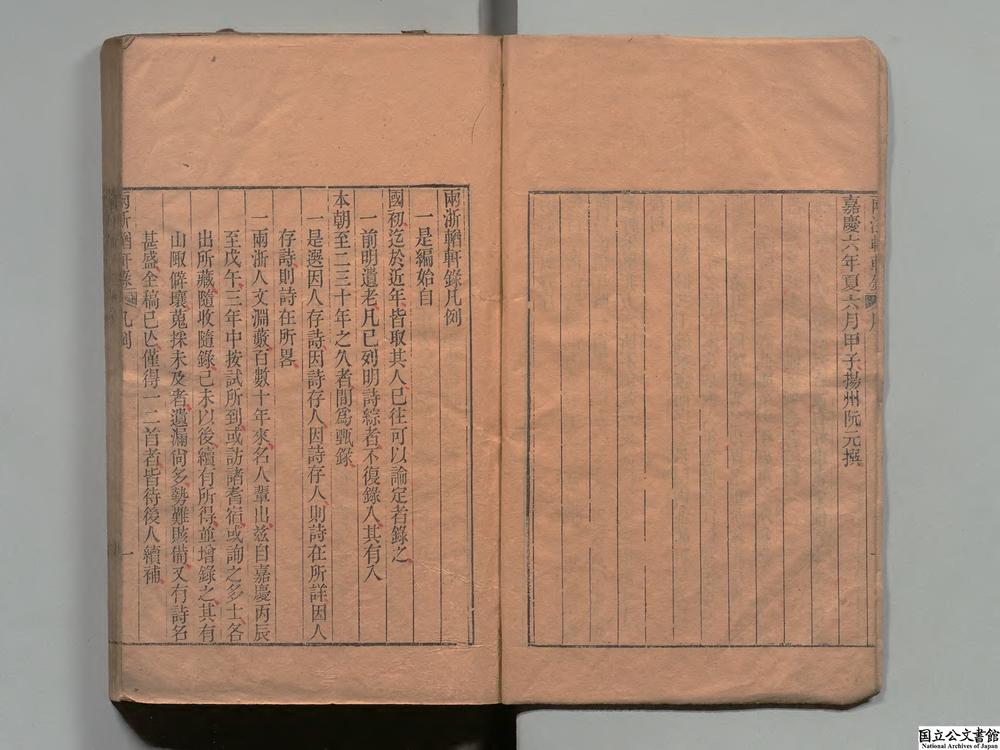 嘉慶六年夏六月甲子揚州阮元撰
兩浙輶軒錄凡例
一是編始自
國初迄於近年皆取其人已往可以論定者錄之
一前明遺老凡已列明詩綜者不復錄入其有入
本朝至二三十年之久者間爲甄錄
一是選因人存詩因詩存人因詩存人則詩在所詳因人
存詩則詩在所畧
一兩浙人文淵藪百數十年來名人輩出兹自嘉慶丙辰
至戊午三年中按試所到或訪諸耆宿或詢之多士各
出所藏隨收隨錄己未以後續有所得並增錄之其有
山陬僻壤蒐採未及者遺漏尚多勢難賅備又有詩名
甚盛全稿已亾僅得一二首者皆待後人續補
兩浙輶軒錄 凡例 一
国立公文書館
National Archives of Japan